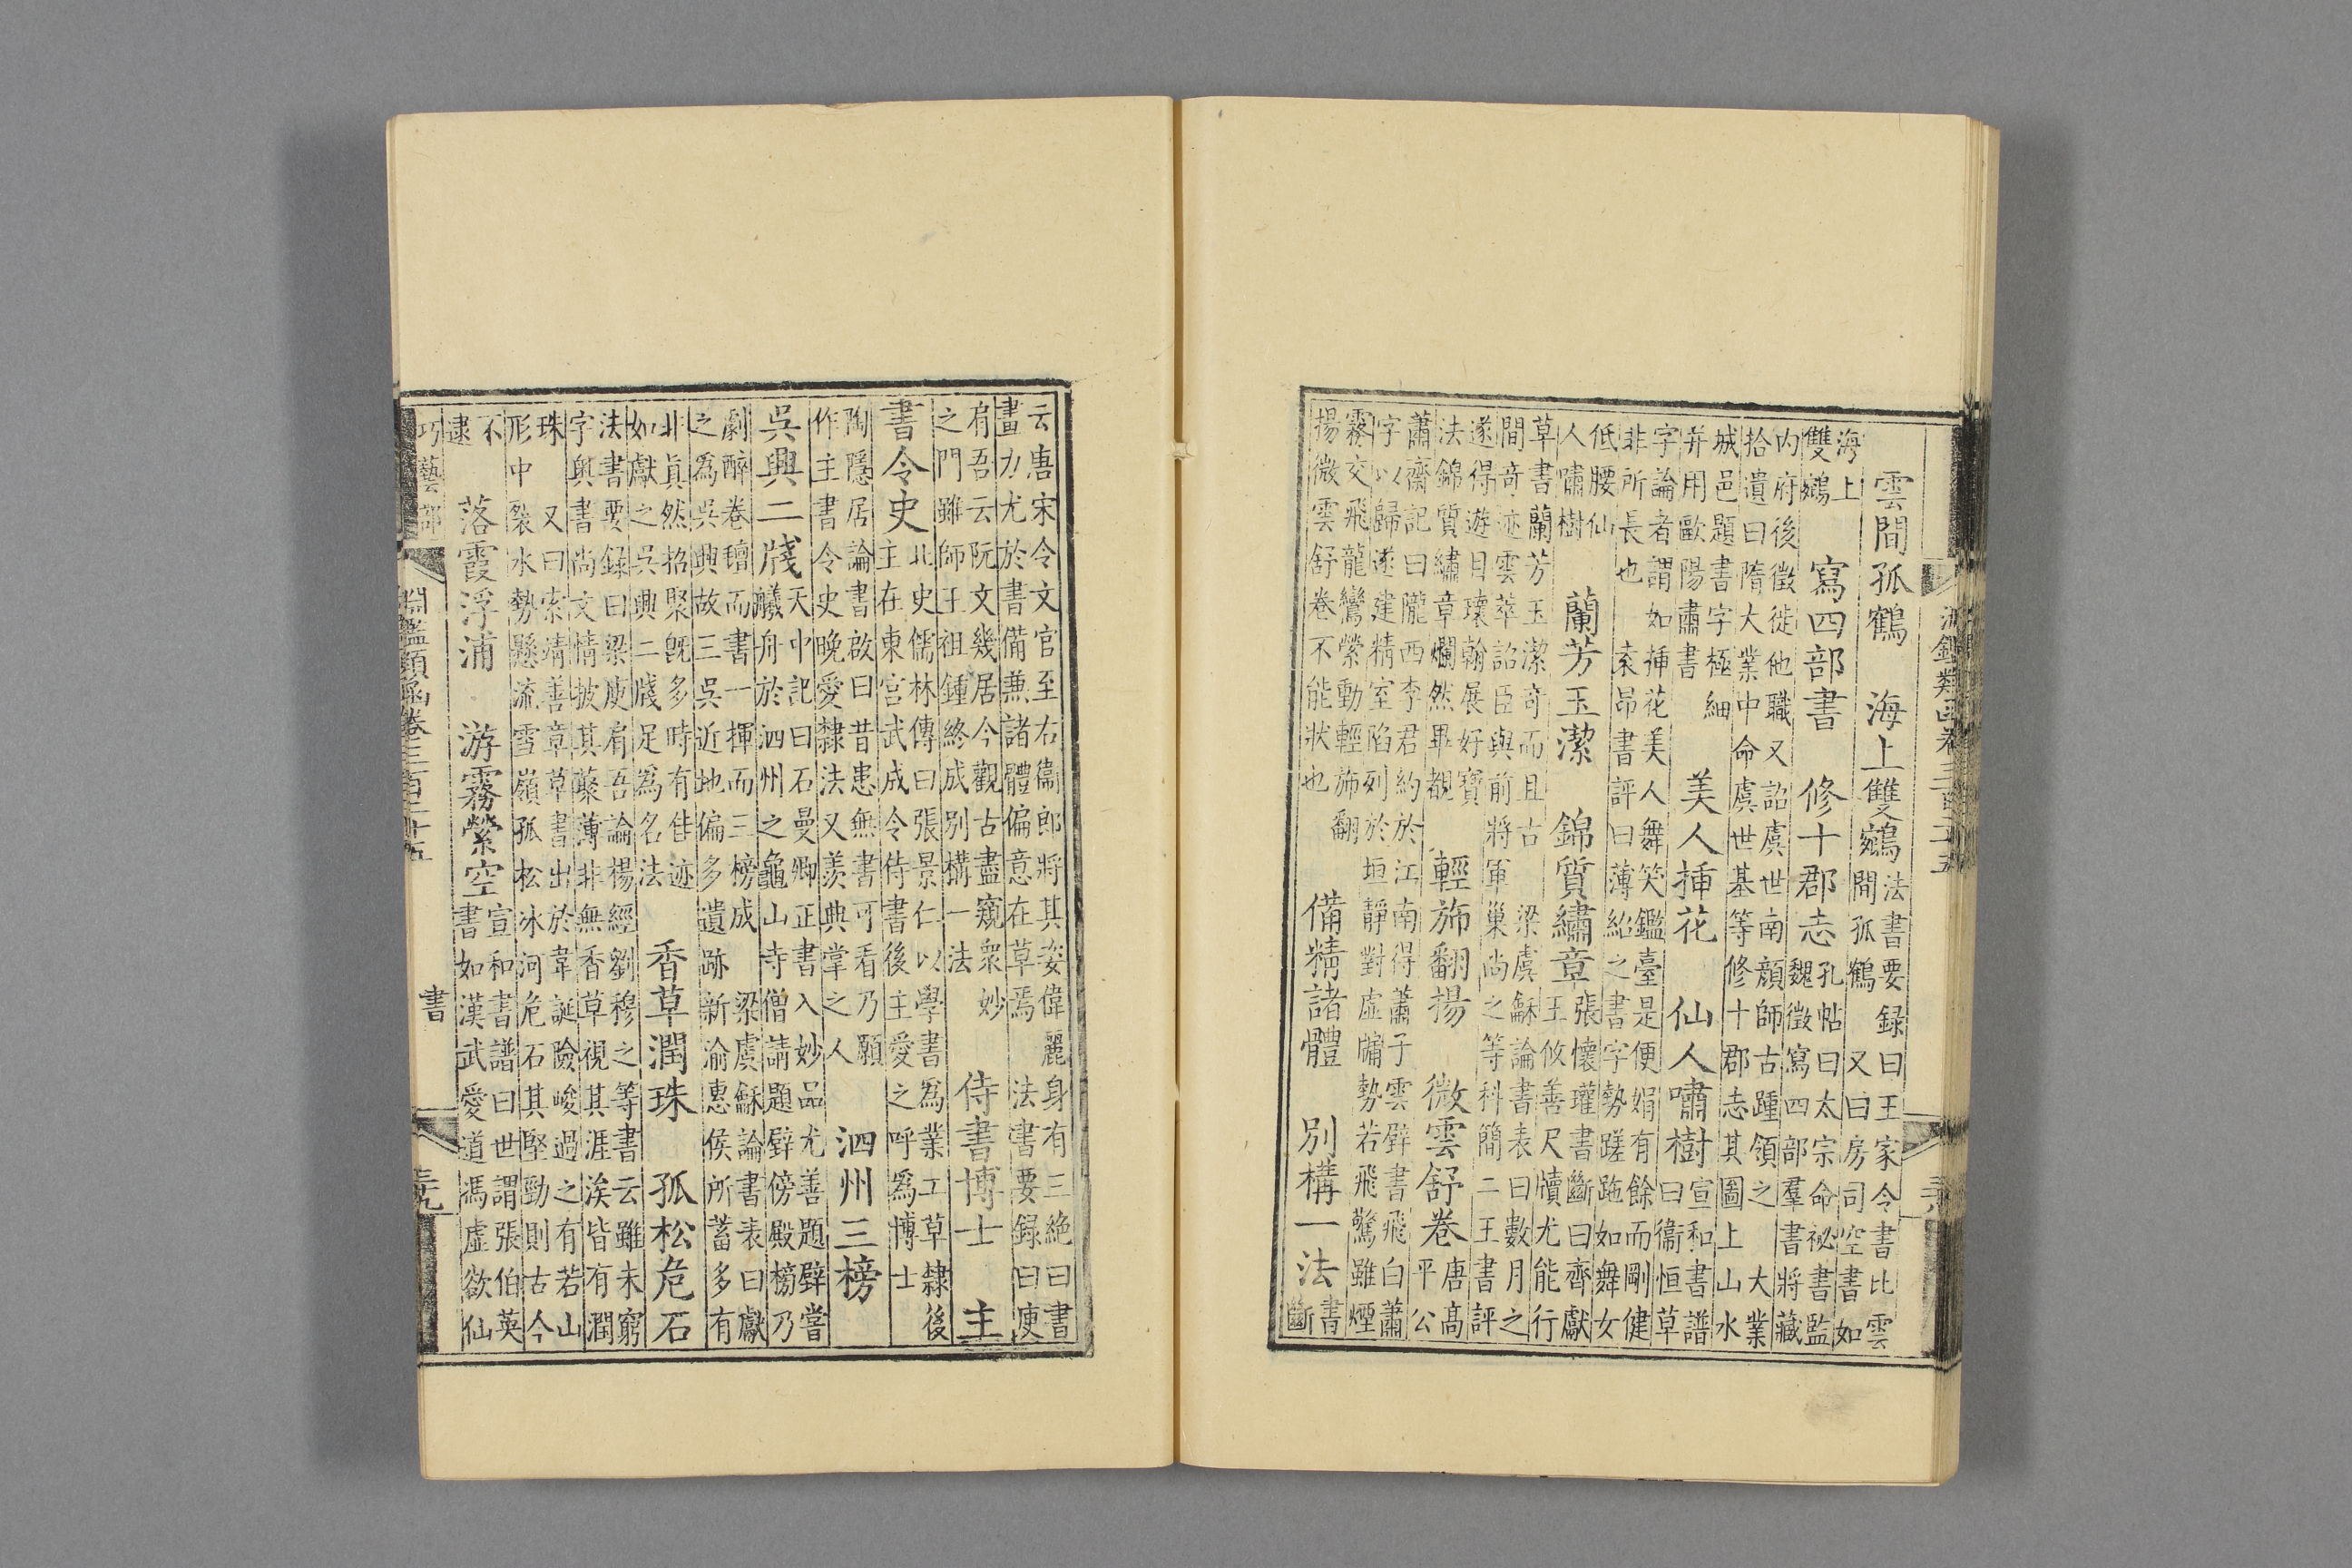 淵鑑類函卷三百二十五
雲間孤鶴　海上雙鵷
法書要録曰王家令書比雲
間孤鶴　又曰房司空書如
海上
雙鵷
寫四部書　修十郡志
孔帖曰太宗命祕書監
魏徵寫四部羣書將藏
内府後徵徙他職又詔虞世南顔師古踵領之　大業
拾遺曰隋大業中命虞世基等修十郡志其圖上山水
城邑題書字極細
并用歐陽肅書
美人揷花　仙人嘯樹
宣和書譜
曰衞恒草
字論者謂如揷花美人舞笑鑑臺是便娟有餘而剛健
非所長也　袁昂書評曰薄紹之書字勢蹉跎如舞女
低腰仙
人嘯樹
蘭芳玉潔　錦質繡章
張懷瓘書斷曰齊獻
王攸善尺牘尤能行
草書蘭芳玉潔奇而且古　梁虞龢論書表曰數月之
間奇迹雲萃詔臣與前將軍巢尚之等科簡二王書評
遂得遊目瓌翰展好寶
法錦質繡章爛然畢覩
輕旆翻揚　微雲舒卷
唐高
平公
蕭齋記曰隴西李君約於江南得蕭子雲壁書飛白蕭
字以歸遂建精室陷列於垣靜對虛牖勢若飛驚雖煙
霧交飛龍鸞縈動輕旆翻
揚微雲舒卷不能狀也
備精諸體　別構一法
書
斷
云唐宋令文官至右衞郎將其姿偉麗身有三絶曰書
畫力尤於書備兼諸體偏意在草焉　法書要録曰庾
肩吾云阮文幾居今觀古盡窺衆妙
之門雖師王祖鍾終成別構一法
侍書博士　主
書令史
北史儒林傳曰張景仁以學書爲業工草隸後
主在東宮武成令侍書後主愛之呼爲博士
陶隱居論書啟曰昔患無書可看乃願
作主書令史晚愛隸法又羨典掌之人
泗州三榜
吳興二牋
天中記曰石曼卿正書入妙品尤善題壁嘗
艤舟於泗州之龜山寺僧請題壁傍殿榜乃
劇醉卷氊而書一揮而三榜成　梁虞龢論書表曰獻
之爲吳興故三吳近地偏多遺跡新渝惠侯所蓄多有
非眞然招聚旣多時有佳迹
如獻之吳興二牋足爲名法
香草潤珠　孤松危石
法書要録曰梁庾肩吾論楊經劉穆之等書云雖未窮
字與書尚文情披其藂薄非無香草視其涯涘皆有潤
珠　又曰索靖善章草書出於韋誕險峻過之有若山
形中裂水勢懸流雪嶺孤松冰河危石其堅勁則古今
不
逮
落霞浮浦　游霧縈空
宣和書譜曰世謂張伯英
書如漢武愛道馮虛欲仙
巧藝部　淵鑑類函卷三百二十五　書